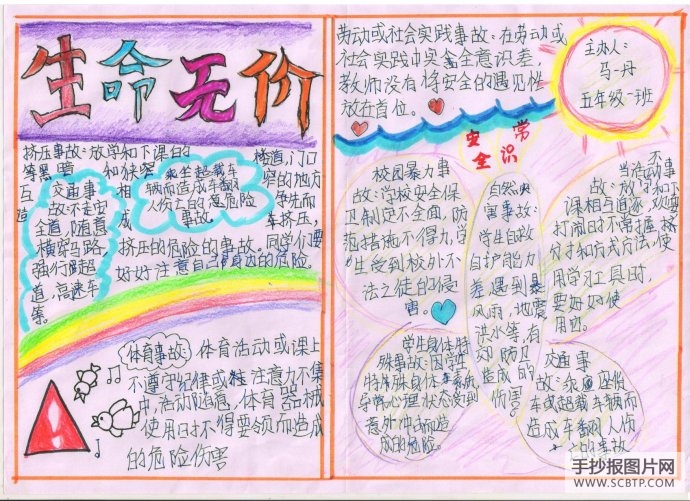 生命无价
挤压事故：放学和下课的
交通事
故：不走安
全道，随意
横穿马路，
强行
道，高速车
等。
乘坐超载车
辆而造成车翻
人伤亡的危险
事故。
楼道，门口
窄的地方
车挤压，
挤压的危险的事故。同学们要
好好注意自己身边的危险。
体育事故：体育活动或课上
不遵守纪律或注意力不集
中，活动随意，体育器械
使用时不得要领而造成
的危险伤害
劳动或社会实践事故：在劳动或
社会实践中安全意识差，
教师没有将安全的
放在首位。
主办人：
马丹
五年级一班
安全常识
校园暴力事
故：学校安全保
卫制定不全面，防
范措施不得力，学
生受到校外不
法之徒的侵
害。
自然灾
害事故：
学生自救
自护能力
差，遇到暴
风雨，地震
洪水等，有
动防卫
造成的
伤害。
不当活动事
故：放学和下
课相互追逐，
打闹时不常握
方式和方式方法，使
用学习工具时
要好好使
用。
学生身体特
殊事故：因学生
特殊身体
导常心理状态受到
意外冲击而造
成的危险。
交通事
故：乘座
车或超载车辆而
造成车翻人伤
亡的事故
手抄报图片网
WWW.SCBTP.COM